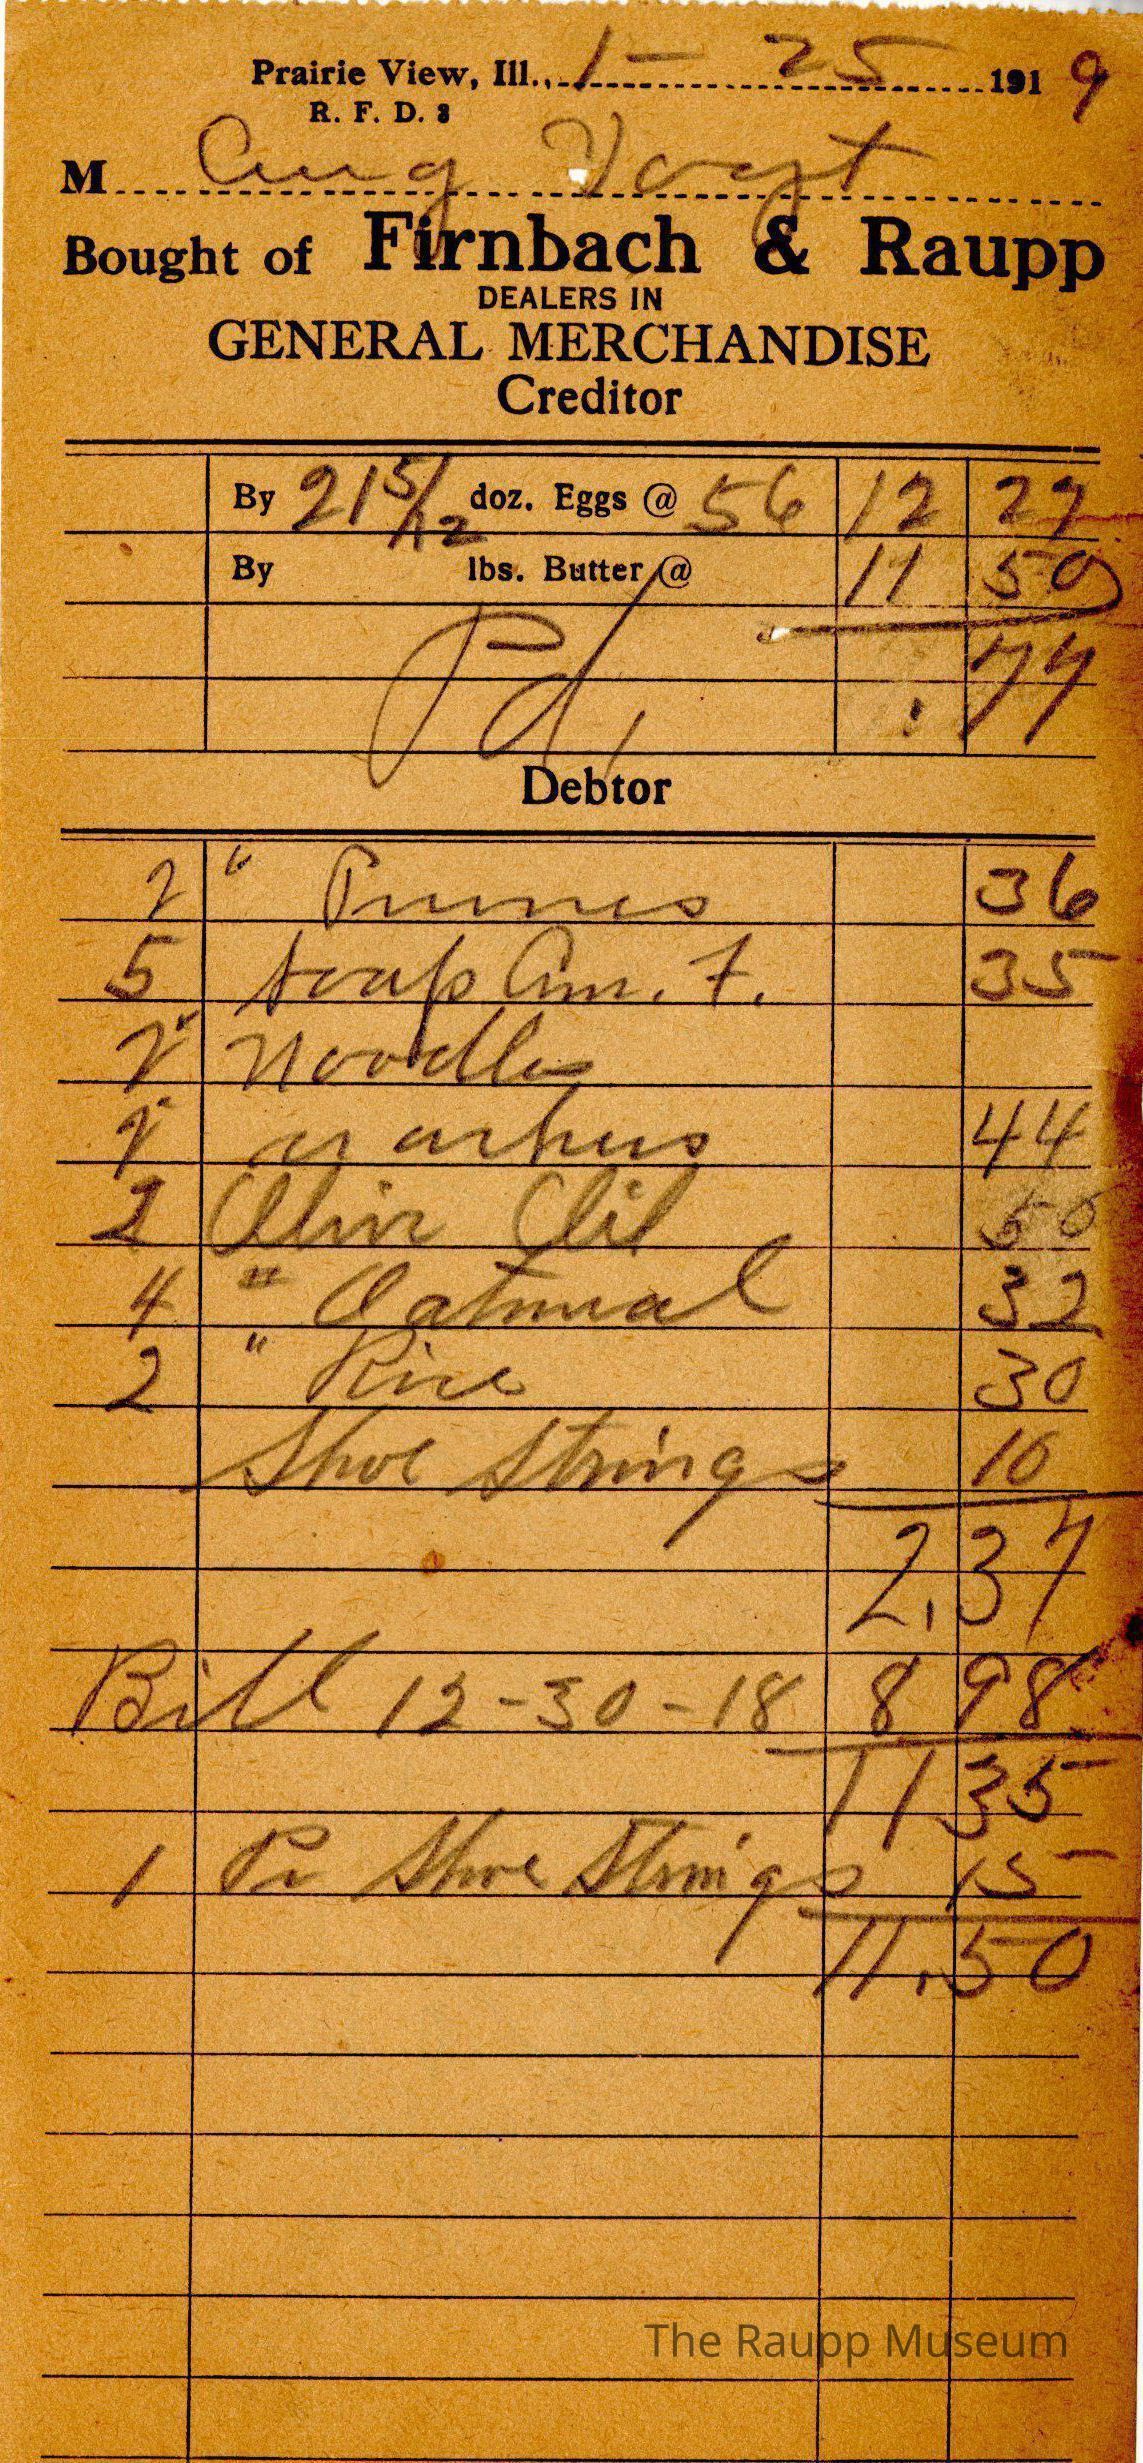 Prairie View, Ill., 1 - 25 1919
R. F. D. 3
M Aug Vogt
Bought of Firnbach & Raupp
DEALERS IN
GENERAL MERCHANDISE
Creditor
By 21 5/12 doz. Eggs @ 56 12 27
By lbs. Butter @ 11 50
Pd, .77
Debtor
2 " Prunes 36
5 Soap Am. F. 35
2 " Noodles
2 " 44
2 Oliv Oil 50
4 " Oatmeal 32
2 " Rice 30
Shoe Strings 10
2.37
Bill 12-30-18 8 98
11 35
1 Pr Shoe Strings 15
11.50
The Raupp Museum